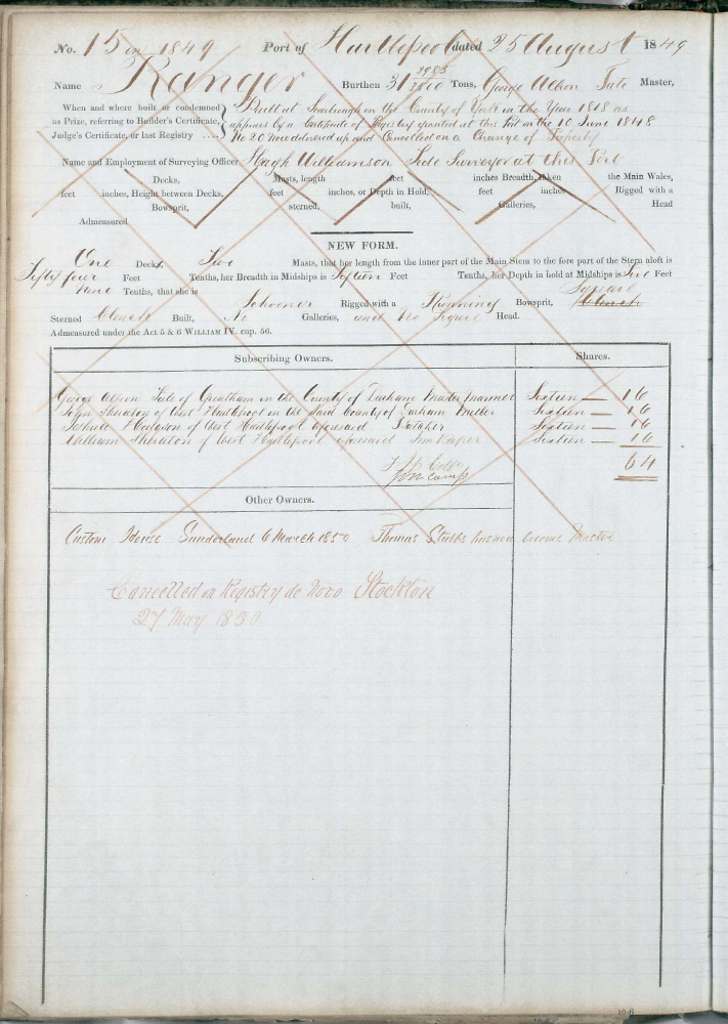 No. 15 in 1849 Port of Hartlepool dated 25 August 1849
Name Ranger Burthen 31 1983/3500 Tons, George Tate Master,
When and where built or condemned
as Prize, referring to Builder's Certificate,
Judge's Certificate, or last Registry ....
Built at Scarborough in the County of York in the Year 1818 as
appears by a Certificate of Registry granted at this Port on the 10 June 1848
No 20 now delivered up and Cancelled on a Change of Property
Name and Employment of Surveying Officer Hugh Williamson Tide Surveyor at this Port
Decks, Masts, length feet inches Breadth, taken the Main Wales,
feet inches, Height between Decks, feet inches, or Depth in Hold, feet inches Rigged with a
Bowsprit, sterned, built, Galleries, Head
Admeasured
NEW FORM.
One Decks, Two Masts, that her length from the inner part of the Main Stem to the fore part of the Stern aloft is
Fifty four Feet Tenths, her Breadth in Midships is Fifteen Feet Tenths, her Depth in hold at Midships is Feet
nine Tenths, that she is Schooner Rigged with a Running Bowsprit, Square Clench
Sterned Clench Built, No Galleries, and no figure Head.
Admeasured under the Act 5 & 6 WILLIAM IV. cap. 56.
Subscribing Owners. Shares.
George Tate of Greatham in the County of Durham Master Mariner Sixteen — 16
John Sheraton of West Hartlepool in the said County of Durham Miller Sixteen — 16
Hodgson of West Hartlepool aforesaid Butcher Sixteen — 16
William Sheraton of West Hartlepool aforesaid Inn Keeper Sixteen — 16
64
Other Owners.
Custom House Sunderland 6 March 1850 Thomas Stubbs become Master
Cancelled on Registry de Novo Stockton
27 May 1850